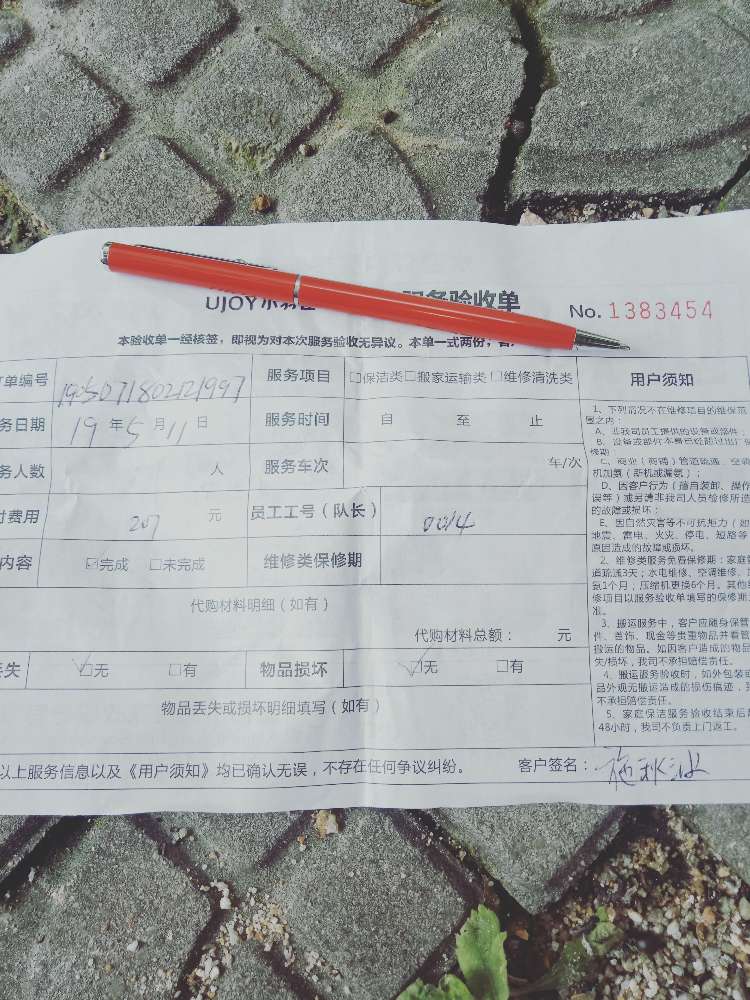 UJOY
服务验收单
No. 1383454
本验收单一经核签，即视为对本次服务验收无异议。本单一式两份，
单编号 1905071802121997 服务项目 □保洁类□搬家运输类□维修清洗类 用户须知
务日期 19 年 5 月 11 日 服务时间 自 至 止
务人数 人 服务车次 车/次
付费用 207 元 员工工号（队长） 0014
内容 ☑完成 □未完成 维修类保修期
代购材料明细（如有）
代购材料总额： 元
丢失 ☑无 □有 物品损坏 ☑无 □有
物品丢失或损坏明细填写（如有）
以上服务信息以及《用户须知》均已确认无误，不存在任何争议纠纷。 客户签名：
1、下列情况不在维修项目的维保范
围之内：
A、非我司员工提供的设备或部件；
C、商业（商铺）管道疏通、空调
机加氨（新机或漏氨）；
D、因客户行为（擅自装卸、操作
误等）或另请非我司人员检修所造
的故障或损坏；
E、因自然灾害等不可抗拒力（如
地震、雷电、火灾、停电、短路等
原因造成的故障或损坏。
2、维修类服务免费保修期：家庭管
道疏通3天；水电维修、空调维修、
氨1个月；压缩机更换6个月。其他维
修项目以服务验收单填写的保修期
准。
3、搬运服务中，客户应随身保管
件、首饰、现金等贵重物品并看管
搬运的物品。如因客户造成的物品
失/损坏，我司不承担赔偿责任。
4、搬运服务验收时，如外包装或
品外观无搬运造成的损伤痕迹，
不承担赔偿责任。
5、家庭保洁服务验收结束后超
48小时，我司不负责上门返工。